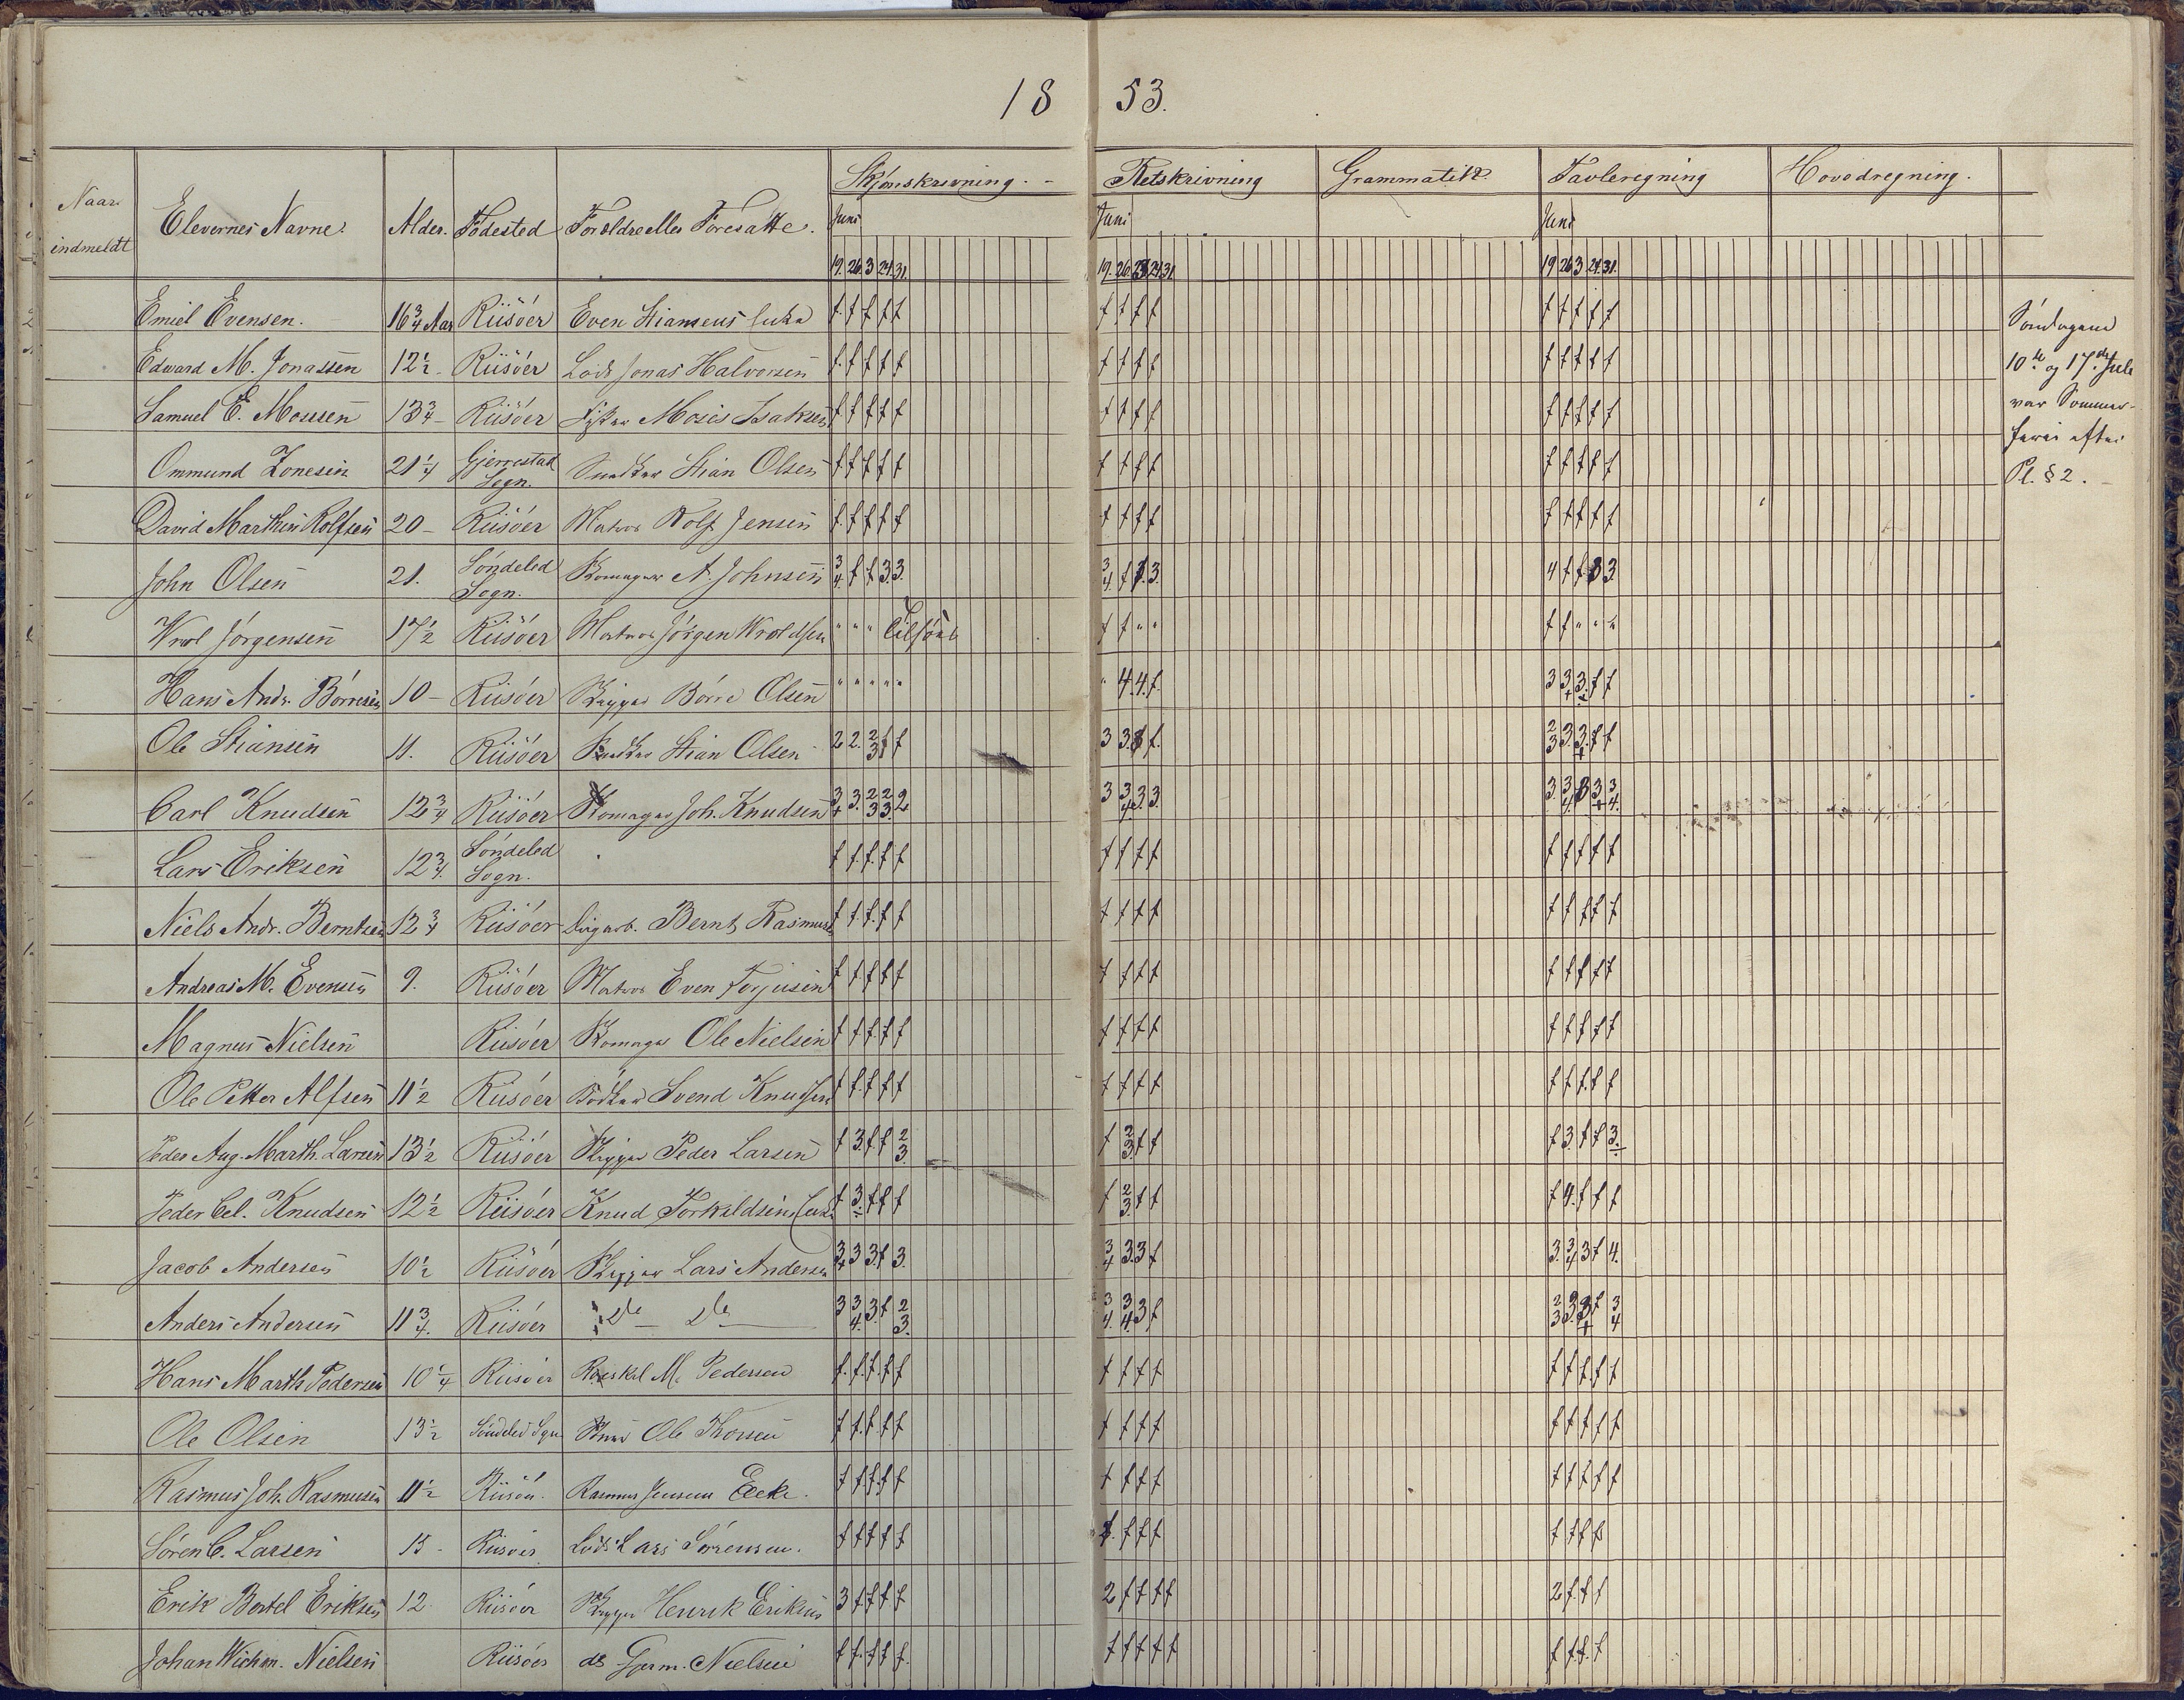 18 53.
Naar indmeldt Elevernes Navne. Alder. Födested Forældre eller Foresatte. Skjønskrivning. Retskrivning Grammatik Tavleregning Hovedregning.
Juni Juni Juni
19. 26. 3 24. 31. 19. 26. 24. 31. 19 26 3 24. 31.
Emiel Evensen. 16 3/4 Aar Riisöer Even f f f f f f f f f f f f f f
Edward M. Jonassen 12 1/2 - Riisöer Lods Jonas Halvorsen f f f f f f f f f f f f f f
Samuel E. Mosesen 13 3/4 - Riisöer Fisker Moses Isaksen f f f f f f f f f f f f f f
Ommund Zonesen 21 1/4 Gjerrestad Sogn. Snedker Stian Olsen f f f f f f f f f f f f f f
David Marthin Rolfsen 20 - Riisöer Matros Rolf Jensen f f f f f f f f f f f f f f
John Olsen 21. Söndeled Sogn. Skomager A. Johnsen 3/4 f f 3 3. 3/4 f 3. 4 f f 3 3
Wrol Jörgensen 17 1/2 Riisöer Matros Jörgen Wroldsen " " " Tilsöes f f " " f f " " "
Hans Andr. Börresen 10 - Riisöer Skipper Börre Olsen " " " " " " 4. 4. f. 3 3 3 f f
Ole Stiansen 11. Riisöer Snedker Stian Olsen 2 2. 2/3 f f 3 3 f. 2/3 3. 3 f f
Carl Knudsen 12 3/4 Riisöer Skomager Joh. Knudsen 3 3. 2/3 2/3 2 3 3/4 3 3. 3. 3/4 3 3 3/4.
Lars Eriksen 12 3/4. Söndeled Sogn. f f f f f f f f f f f f f f
Niels Andr. Berntsen 12 3/4 Riisöer Bernt Rasmus f f f f f f f f f f f f f f
Andreas M. Evensen 9. Riisöer Matros Even Torjusen f f f f f f f f f f f f f f
Magnus Nielsen Riisöer Skomager Ole Nielsen f f f f f f f f f f f f f f
Ole Petter Alfsen 11 1/2 Riisöer Bödker Svend Knudsen f f f f f f f f f f f f f f
Peder Aug. Marth. Larsen 13 1/2 Riisöer Skipper Peder Larsen f 3. f f 2/3. f 2/3. f f f 3. f f 3.
Peder Cel. Knudsen 12 1/2 Riisöer Knud Torkildsens Enke f 3. f f f f 2/3. f f f 4. f f f
Jacob Andersen 10 1/2 Riisöer Skipper Lars Andersen 3 3 3. f 3. 3/4 3. 3 f 3. 3/4 3 f 4.
Anders Andersen 11 3/4. Riisöer De De 3 3/4. 3. f 2/3. 3/4. 3/4. 3 f 2/3 3. 3 f 3/4
Hans Marth. Pedersen 10 1/4 Riisöer M. Pedersen f. f. f. f f f f f f f f f f f
Ole Olsen 13 1/2 Söndeled Sgn Ole f f f f f f f f f f f f f f
Rasmus Joh. Rasmussen 11 1/2 Riisöer. Rasmus Jensens Encke. f f f f f f f f f f f f f f
Sören C. Larsen 15 - Riisöer Lods Lars Sörensen. f f f f f f. f f f f f f f
Erik Bertel Eriksen 12. Riisöer Skipper Henrik Eriksen 3 f f f f 2 f f f f 2 f. f f
Johan Wichm. Nielsen Riisöer do Gjerm. Nielsen f f. f f f. f f f f f f f. f. f
Söndagene
10de og 17de Juli
var Sommer-
ferie efter
Pl. § 2.